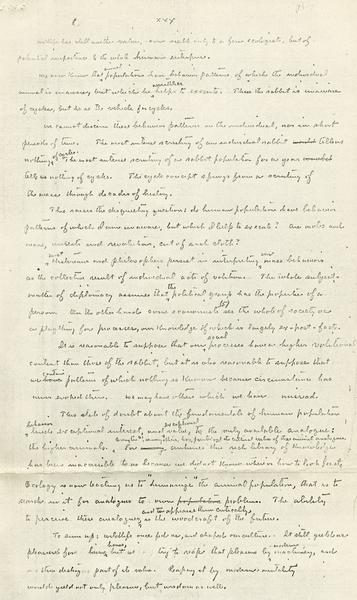 8. xxx
wildlife has still another value, now visible only to a few ecologists, but of
potential importance to the whole human enterprise.
We now know that animal populations have behavior patterns of which the individual
animal is unaware, but which he nevertheless helps to execute. Thus the rabbit is unaware
of cycles, but he is the vehicle for cycles.
We cannot discern these behavior patterns in the individual, nor in short
periods of time. The most intense scrutiny of an individual rabbit tells us
nothing of cycles. The most intense scrutiny of a rabbit population for a year
tells us nothing of cycles. The cycle concept springs from a scrutiny of
the mass through decades of
This raises the disquieting question: do human populations have behavior
patterns of which we are unaware, but which we help to execute? Are mobs and
wars, unrests and revolutions, cut of such cloth?
Historians and philosophers persist in interpreting our mass behaviors
as the collective result of individual acts of volition. The whole subject-
matter of diplomacy assumes that the political group has the properties of a
person. On the other hand some economists see the whole of society as
a plaything for processes, our knowledge of which is largely ex-post-facto.
It is reasonable to suppose that our social processes have a higher volitional
content than those of the rabbit, but it is also reasonable to suppose that
we contain patterns of which nothing is known because circumstance has
never evoked them. We may have others which we have misread.
This state of doubt about the fundamentals of human population
behavior lends exceptional interest, and exceptional value, to the only available analogue:
the higher animals.
has been inaccessible to us because we did not know where or how to look for it.
Ecology is now teaching us to the animal population, that is to
search in it for analogues to our own problems. The ability
to perceive these analogues, and to appraise them critically, is the woodcraft of the future.
To sum up: wildlife once fed us, and shaped our culture. It still yields us
pleasure for leisure hours, but we try to reap that pleasure by modern machinery, and
thus destroy part of its value. Reaping it by modern mentality
would yield not only pleasure, but wisdom as well.